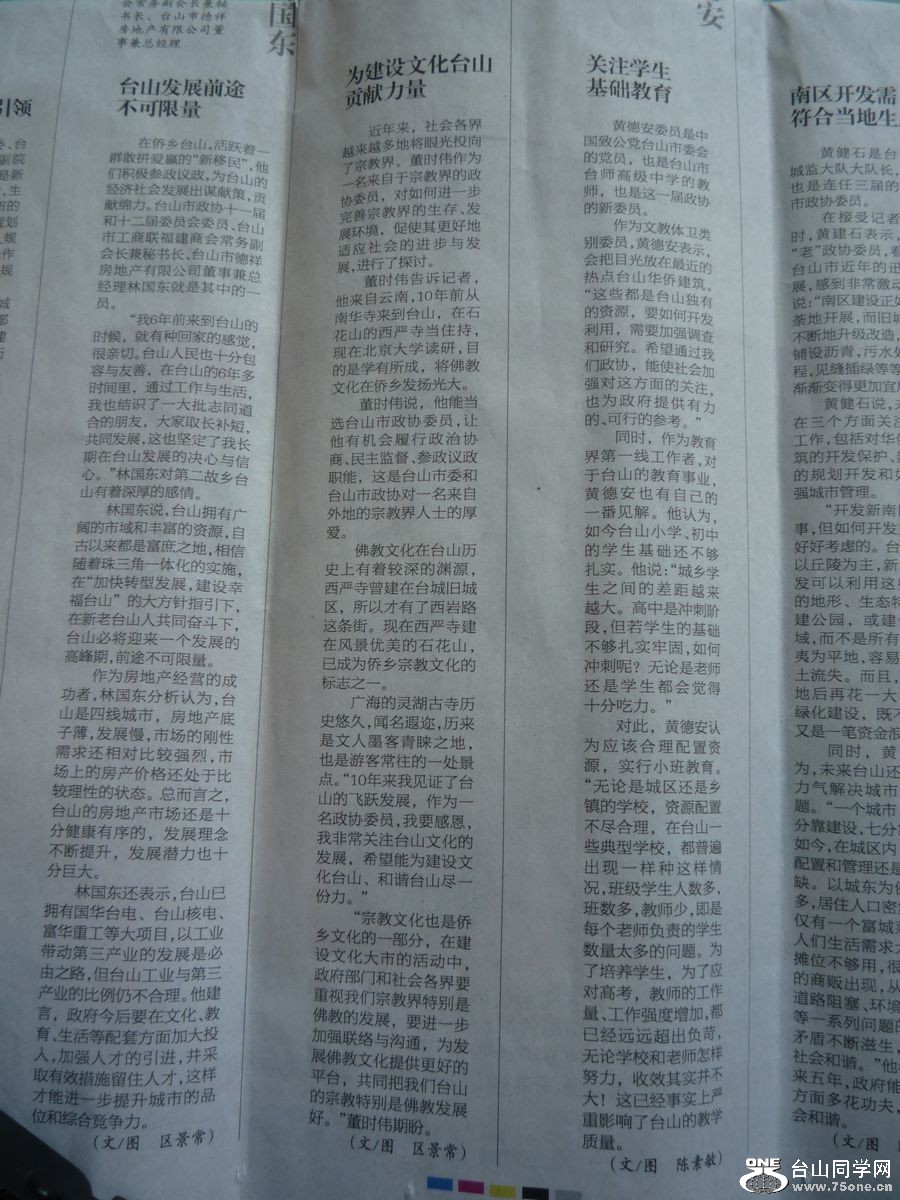 引领
会常务副会长兼秘
书长、台山市德祥
房地产有限公司董
事兼总经理
国
东
台山发展前途
不可限量
在侨乡台山,活跃着一
群敢拼爱赢的“新移民”,他
们积极参政议政,为台山的
经济社会发展出谋献策,贡
献绵力。台山市政协十一届
和十二届委员会委员、台山
市工商联福建商会常务副
会长兼秘书长、台山市德祥
房地产有限公司董事兼总
经理林国东就是其中的一
员。
“我6年前来到台山的
时候,就有种回家的感觉,
很亲切。台山人民也十分包
容与友善,在台山的6年多
时间里,通过工作与生活,
我也结识了一大批志同道
合的朋友,大家取长补短,
共同发展,这也坚定了我长
期在台山发展的决心与信
心。”林国东对第二故乡台
山有着深厚的感情。
林国东说,台山拥有广
阔的市域和丰富的资源,自
古以来都是富庶之地,相信
随着珠三角一体化的实施,
在“加快转型发展,建设幸
福台山”的大方针指引下,
在新老台山人共同奋斗下,
台山必将迎来一个发展的
高峰期,前途不可限量。
作为房地产经营的成
功者,林国东分析认为,台
山是四线城市,房地产底
子薄,发展慢,市场的刚性
需求还相对比较强烈,市
场上的房产价格还处于比
较理性的状态。总而言之,
台山的房地产市场还是十
分健康有序的,发展理念
不断提升,发展潜力也十
分巨大。
林国东还表示,台山已
拥有国华台电、台山核电、
富华重工等大项目,以工业
带动第三产业的发展是必
由之路,但台山工业与第三
产业的比例仍不合理。他建
言,政府今后要在文化、教
育、生活等配套方面加大投
入,加强人才的引进,并采
取有效措施留住人才,这样
才能进一步提升城市的品
位和综合竞争力。
(文/图 区景常)
为建设文化台山
贡献力量
近年来,社会各界
越来越多地将眼光投向
了宗教界。董时伟作为
一名来自于宗教界的政
协委员,对如何进一步
完善宗教界的生存、发
展环境,促使其更好地
适应社会的进步与发
展,进行了探讨。
董时伟告诉记者,
他来自云南,10年前从
南华寺来到台山,在石
花山的西严寺当住持,
现在北京大学读研,目
的是学有所成,将佛教
文化在侨乡发扬光大。
董时伟说,他能当
选台山市政协委员,让
他有机会履行政治协
商、民主监督、参政议政
职能,这是台山市委和
台山市政协对一名来自
外地的宗教界人士的厚
爱。
佛教文化在台山历
史上有着较深的渊源,
西严寺曾建在台城旧城
区,所以才有了西岩路
这条街。现在西严寺建
在风景优美的石花山,
已成为侨乡宗教文化的
标志之一。
广海的灵湖古寺历
史悠久,闻名遐迩,历来
是文人墨客青睐之地,
也是游客常往的一处景
点。“10年来我见证了台
山的飞跃发展,作为一
名政协委员,我要感恩,
我非常关注台山文化的
发展,希望能为建设文
化台山、和谐台山尽一
份力。”
“宗教文化也是侨
乡文化的一部分,在建
设文化大市的活动中,
政府部门和社会各界要
重视我们宗教界特别是
佛教的发展,要进一步
加强联络与沟通,为发
展佛教文化提供更好的
平台,共同把我们台山
的宗教特别是佛教发展
好。”董时伟期盼。
(文/图 区景常)
安
关注学生
基础教育
黄德安委员是中
国致公党台山市委会
的党员,也是台山市
台师高级中学的教
师,也是这一届政协
的新委员。
作为文教体卫类
别委员,黄德安表示,
会把目光放在最近的
热点台山华侨建筑。
“这些都是台山独有
的资源,要如何开发
利用,需要加强调查
和研究。希望通过我
们政协,能使社会加
强对这方面的关注,
也为政府提供有力
的、可行的参考。”
同时,作为教育
界第一线工作者,对
于台山的教育事业,
黄德安也有自己的
一番见解。他认为,
如今台山小学、初中
的学生基础还不够
扎实。他说:“城乡学
生之间的差距越来
越大。高中是冲刺阶
段,但若学生的基础
不够扎实牢固,如何
冲刺呢?无论是老师
还是学生都会觉得
十分吃力。”
对此,黄德安认
为应该合理配置资
源,实行小班教育。
“无论是城区还是乡
镇的学校,资源配置
不尽合理,在台山一
些典型学校,都普遍
出现一样种这样情
况,班级学生人数多,
班数多,教师少,即是
每个老师负责的学生
数量太多的问题。为
了培养学生,为了应
对高考,教师的工作
量、工作强度增加,都
已经远远超出负荷,
无论学校和老师怎样
努力,收效其实并不
大!这已经事实上严
重影响了台山的教学
质量。
(文/图 陈素敏)
南区开发需
符合当地生
黄健石是台
城监大队大队长,
也是连任三届的
市政协委员。
在接受记者
时,黄健石表示,
“老”政协委员,看
台山市近年的迅
展,感到非常激动
说:“南区建设正如
荼地开展,而旧城
不断地升级改造,
铺设沥青,污水处
程,见缝插绿等等
渐渐变得更加宜
黄健石说,
在三个方面关注
工作,包括对华侨
筑的开发保护、
的规划开发和如
强城市管理。
“开发新南
事,但如何开发
好好考虑的。台
以丘陵为主,新
发可以利用这
的地形、生态特
建公园,或建
域,而不是所有
夷为平地,容易
土流失。而且,
地后再花一大
绿化建设,既不
又是一笔资金浪
同时,黄
为,未来台山还
力气解决城市
题。“一个城市
分靠建设,七分
如今,在城区内
配置和管理还是
缺。以城东为例
多,居住人口密
仅有一个富城
人们生活需求
摊位不够用,很
的商贩出现,从
道路阻塞、环境
等一系列问题的
矛盾不断滋生,
社会和谐。”他
来五年,政府能
方面多花功夫,
会和谐。
(文/
ONE 台山同学网
www.75one.cn